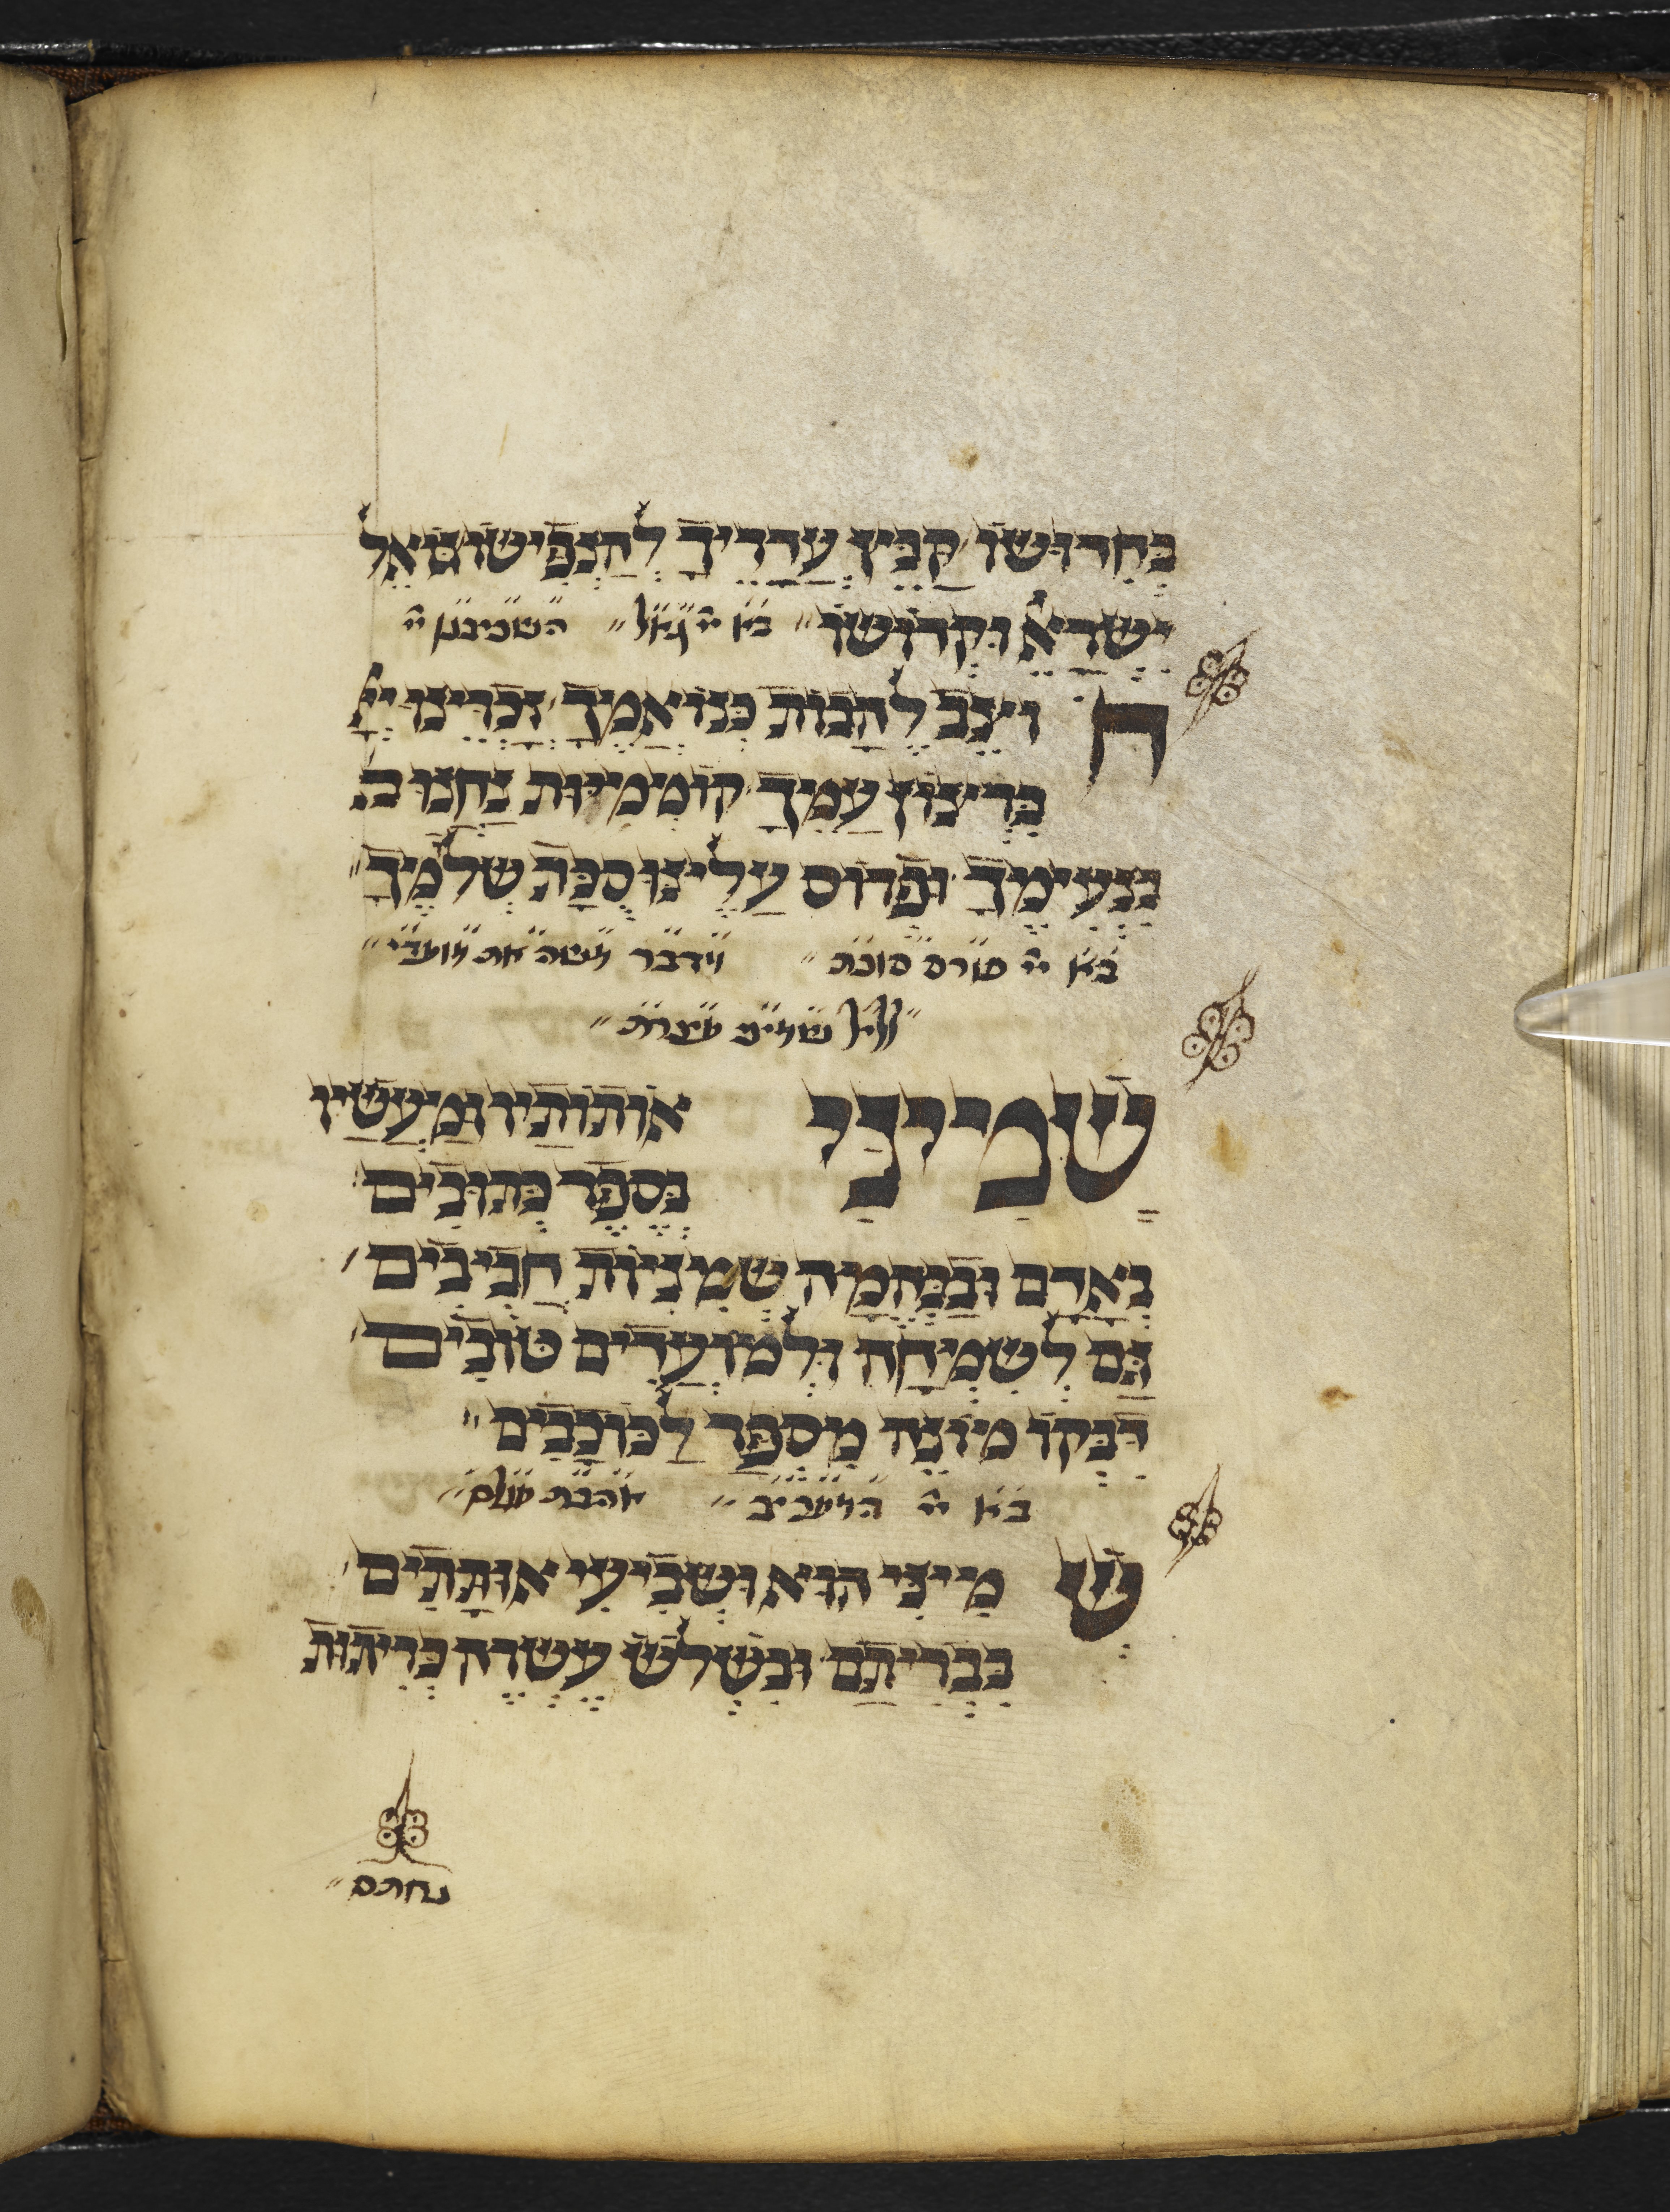 בחדושו קבץ עדריך להנפישו גואל
ישראל וקדושו בא״י גאל השכיבנו
ח ויצב להבות כנו אמך זכרינו י״י
ברצון עמך קוממיות נחנו ב
בנעימך ופרוס עלינו סכת שלמך
בא״י פורס סוכת וידבר משה את מועדי
ליל שמיני עצרת
שמיני אותותיו ומעשיו
בספר כתובים
באדם ובבהמה שמיניות חביבים
גם לשמיחה ולמועדים טובים
דבקו מונה מספר לכוכבים
בא״י המעריב אהבת עולם
ש מיני הוא ושביעי אותתים
בבריתם ובשלש עשרה בריתות
נחתם